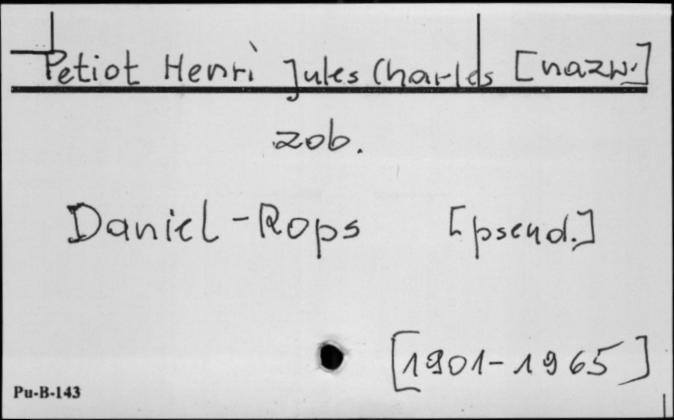 Petiot Henri Jules Charles [nazw.]
zob.
Daniel-Rops [pseud.]
[1901-1965]
Pu-B-143